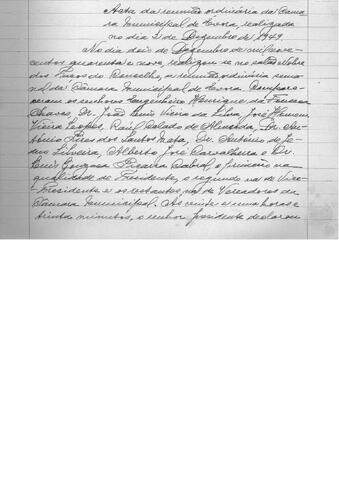 Acta da reunião ordinária da Cama-
ra Municipal de Evora, realizada
no dia 2 de Dezembro de 1949.
No dia dois de Dezembro de mil nove-
centos quarenta e nove, realizou-se no salão nobre
dos Paços do Concelho, a reunião ordinária sema-
nal da Câmara Municipal de Evora. Compare-
ceram os senhores Engenheiro Henrique da Fonseca
Chaves, Dr. João Luis Vieira da Silva, José Homem
Vieira, Raúl Calado de Almeida, Dr. An-
tónio Pires dos Santos, Dr. António de
Silveira, Alberto José Carvalheira e Dr.
Luis Gonzaga Cabral, o primeiro na
qualidade de Presidente, o segundo na de Vice-
-Presidente e os restantes na de Vereadores da
Câmara Municipal. As vinte e uma horas e
trinta minutos, o senhor presidente declarou